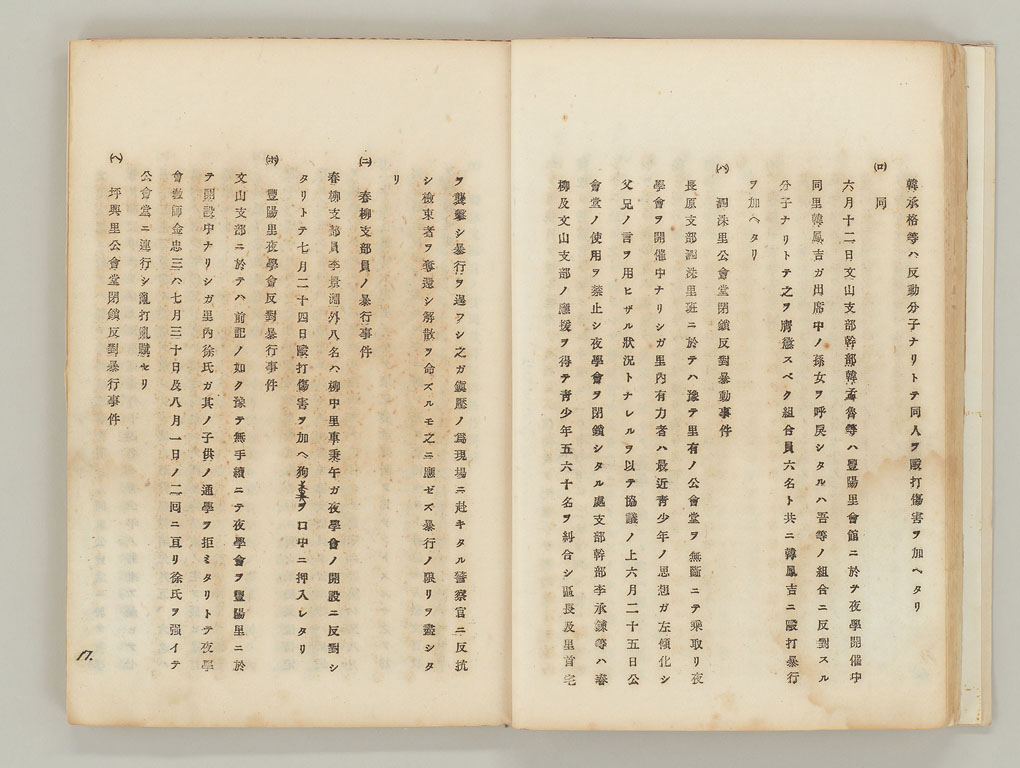 韓承格等ハ反動分子ナリトテ同人ヲ毆打傷害ヲ加ヘタリ
(ロ) 同
六月十二日文山支部幹部韓孟魯等ハ豐陽里會館ニ於テ夜學開催中
同里韓鳳吉ガ出席中ノ孫女ヲ呼戻シタルハ吾等ノ組合ニ反對スル
分子ナリトテ之ヲ膺懲スベク組合員六名ト共ニ韓鳳吉ニ毆打暴行
ヲ加ヘタリ
(ハ) 泗洙里公會堂閉鎖反對暴動事件
長原支部泗洙里班ニ於テハ豫テ里有ノ公會堂ヲ無斷ニテ乘取リ夜
學會ヲ開催中ナリシガ里內有力者ハ最近靑少年ノ思想ガ左傾化シ
父兄ノ言ヲ用ヒザル狀況トナレルヲ以テ協議ノ上六月二十五日公
會堂ノ使用ヲ禁止シ夜學會ヲ閉鎖シタル處支部幹部李承鍊等ハ春
柳及文山支部ノ應援ヲ得テ靑少年五六十名ヲ糾合シ區長及里首宅
ヲ襲擊シ暴行ヲ逞フシ之ガ鎭壓ノ爲現場ニ赴キタル警察官ニ反抗
シ檢束者ヲ奪還シ解散ヲ命ズルモ之ニ應ゼズ暴行ノ限リヲ盡シタ
リ
(ニ) 春柳支部員ノ暴行事件
春柳支部員李景淵外八名ハ柳中里車秉午ガ夜學會ノ開設ニ反對シ
タリトテ七月二十四日毆打傷害ヲ加ヘ狗糞ヲ口中ニ押入レタリ
(ホ) 豐陽里夜學會反對暴行事件
文山支部ニ於テハ前記ノ如ク豫テ無手續ニテ夜學會ヲ豐陽里ニ於
テ開設中ナリシガ里內徐氏ガ其ノ子供ノ通學ヲ拒ミタリトテ夜學
會敎師金忠三ハ七月三十日及八月一日ノ二囘ニ亘リ徐氏ヲ强イテ
公會堂ニ連行シ亂打亂蹴セリ
(ヘ) 坪興里公會堂閉鎖反對暴行事件
17.